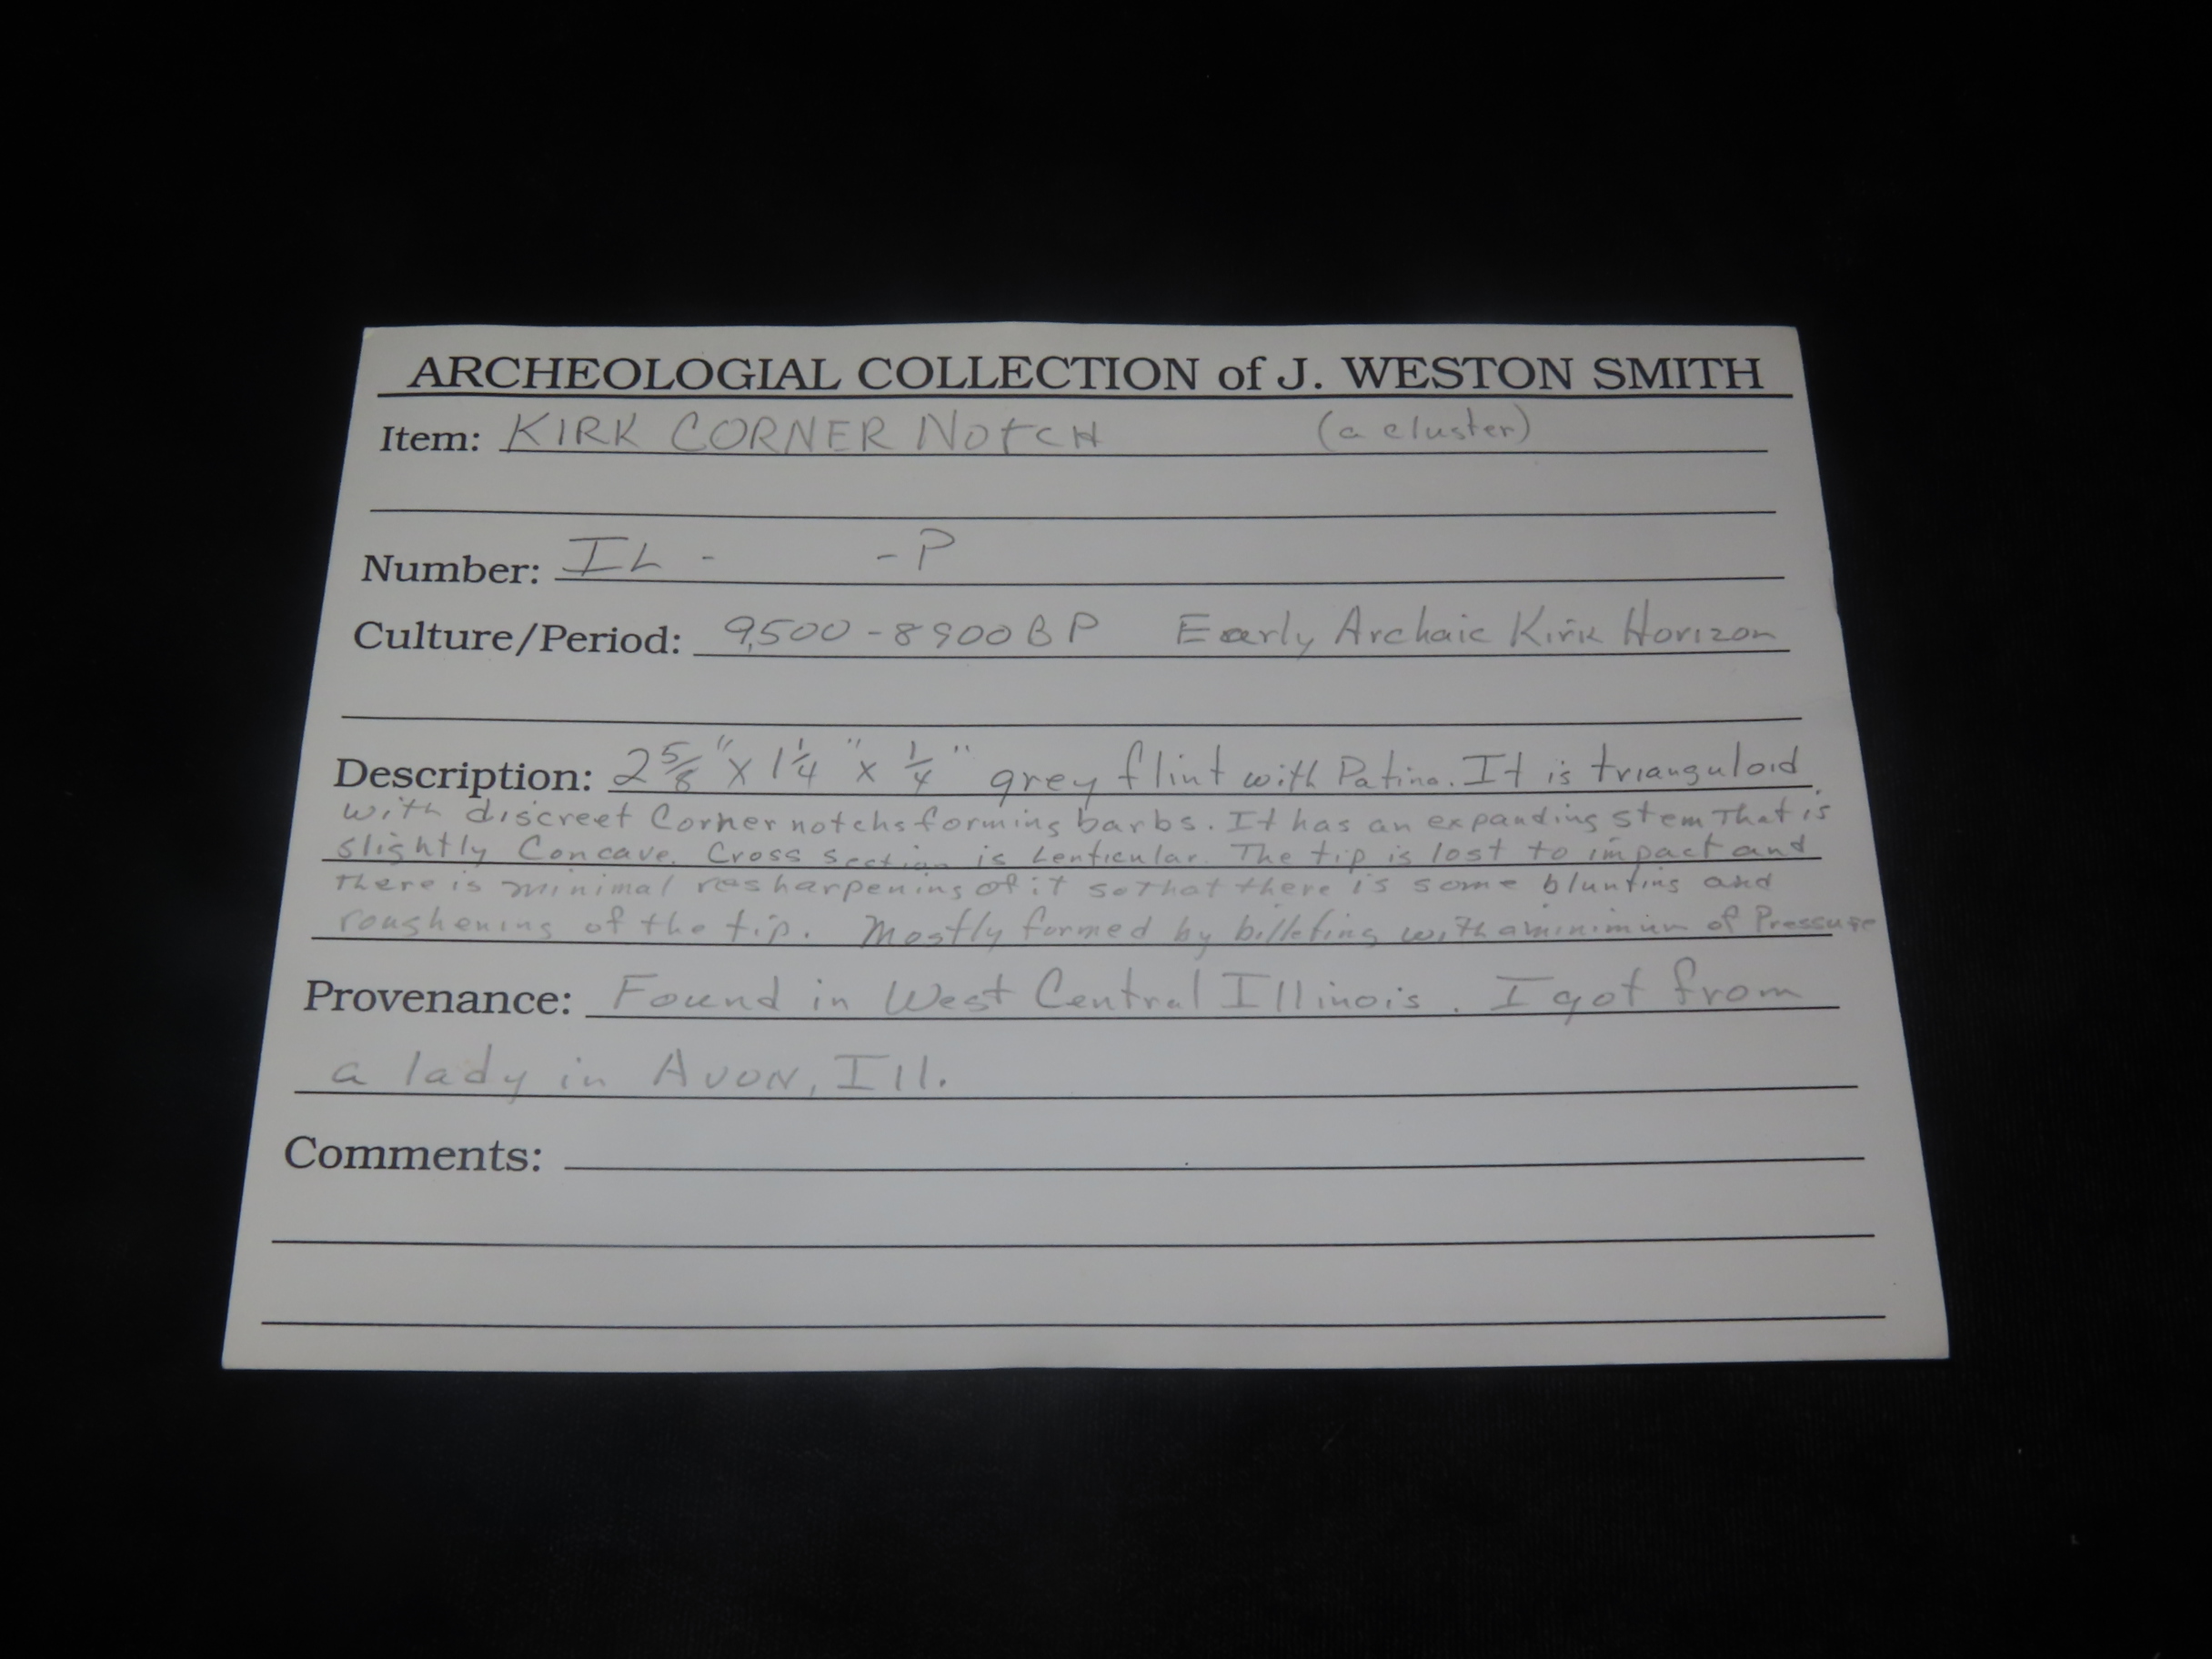 ARCHEOLOGIAL COLLECTION of J. WESTON SMITH
Item: KIRK CORNER NOTCH (a cluster)
Number: IL - - P
Culture/Period: 9,500 - 8900 BP Early Archaic Kirk Horizon
Description: 2 5/8" x 1 1/4" x 1/4" grey flint with Patina. It is trianguloid
with discreet Corner notchs forming barbs. It has an expanding stem That is
slightly Concave. Cross section is Lenticular. The tip is lost to impact and
there is minimal resharpening of it so That there is some blunting and
roughening of the tip. Mostly formed by billeting with a minimum of Pressure
Provenance: Found in West Central Illinois. I got from
a lady in AVON, Ill.
Comments: